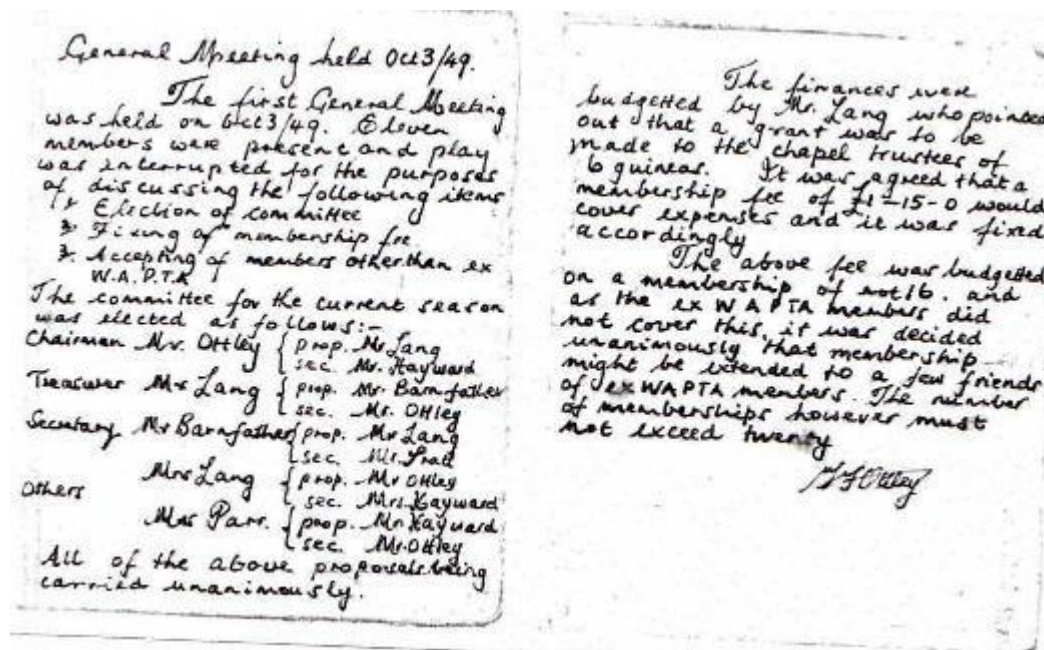 General Meeting held Oct 3/49.
The first General Meeting
was held on Oct 3/49. Eleven
members were present and play
was interrupted for the purposes
of discussing the following items
1. Election of committee
2. Fixing of membership fee.
3. Accepting of members other than ex
W.A.P.T.A
The committee for the current season
was elected as follows:-
Chairman Mr. Ottley { prop. Mr Lang
sec. Mr. Hayward
Treasurer Mr Lang { prop. Mr. Barnfather
sec. Mr. Ottley
Secretary Mr Barnfather { prop. Mr Lang
sec. Mr.
Mrs Lang { prop. Mr Ottley
Others
sec. Mrs Hayward
Mrs Parr. { prop. Mr Hayward
sec. Mr. Ottley
All of the above proposals being
carried unanimously.
The finances were
budgetted by Mr. Lang who pointed
out that a grant was to be
made to the chapel trustees of
6 guineas. It was agreed that a
membership fee of £1-15-0 would
cover expenses and it was fixed
accordingly
The above fee was budgetted
on a membership of 16. and
as the ex WAPTA members did
not cover this, it was decided
unanimously that membership
might be extended to a few friends
of ex WAPTA members. The number
of memberships however must
not exceed twenty
Ottley